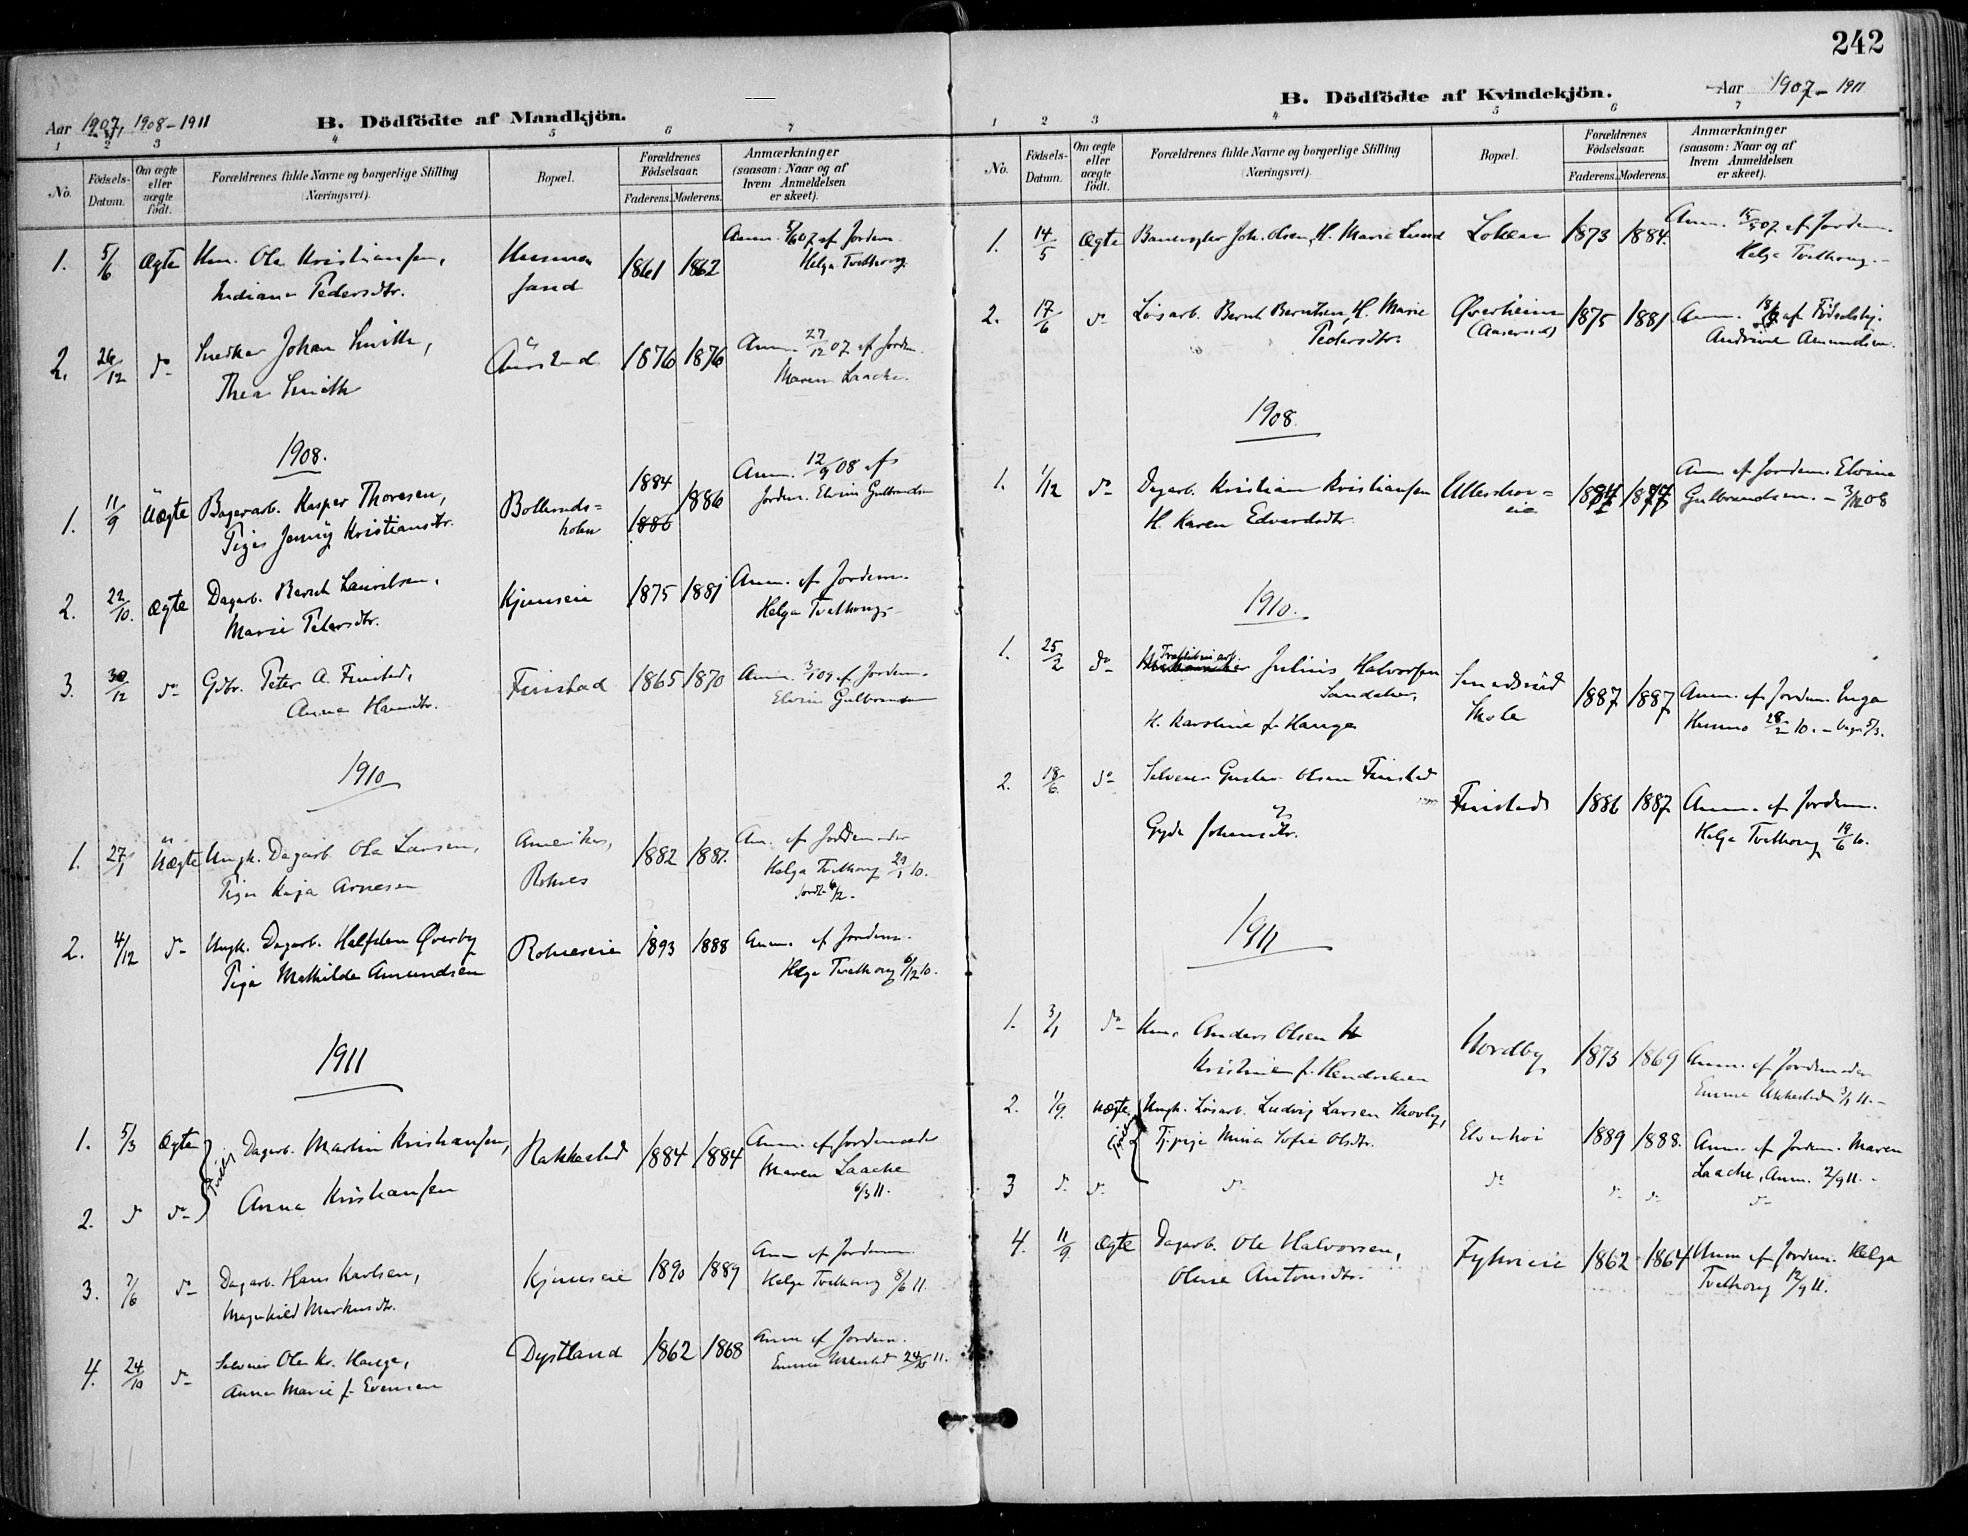 242
Aar 1907, 1908-1911
B. Dödfödte af Mandkjön.
1 2 3 4 5 6 7
No.
Födsels-Datum.
Om ægte eller uægte födt.
Forældrenes fulde Navne og borgerlige Stilling (Næringsvei).
Bopæl.
Forældrenes Födselsaar.
Faderens. Moderens.
Anmærkninger (saasom: Naar og af hvem Anmeldelsen er skeet).
1. 5/6 Ægte Ole Kristiansen, 1861 1862 Anm. 5/6 07 af Jordm.
Indiane Pedersdtr. Helga Tvethoug.
2. 26/12 do Snedker Johan Smith, Aursland 1876 1876 Anm. 27/12 07 af Jordm.
Thea Smith Maren Laache.
1908.
1. 11/9 Uægte Bagerarb. Kasper Thoresen, 1884 1886 Anm. 12/9 08 af
Pige Jenny Kristiansdtr. 1886 Jordm. Elvine Gulbrandsen
2. 22/10. Ægte Dagarb. Bernt Lauritsen, Kjenseie 1875 1881 Anm. af Jordm.
Marie Petersdtr. Helga Tvethoug
3. 30/12 do Gdbr. Peter A. Finstad, Finstad 1865 1870 Anm. af Jordm.
Anna Elvine Gulbrandsen
1910
1. 27/1 Uægte Ungk. Dagarb. Ole Larsen, Amerika, 1882 1887. Anm. af Jordemoder
Pige Kaja Arnesen Helga Tvethoug 10.
2. 4/12 do Ungk. Dagarb. Halfdan Øverby 1893 1888 Anm. af Jordm.
Pige Mathilde Amundsen Helga Tvethoug 6/12 10.
1911
1. 5/3 Ægte Dagarb. Martin Kristiansen, Rakkestad 1884 1884 Anm. af Jordemoder
Maren Laache
6/3 11.
2. do do Anna Kristiansen
3. 7/6 do Dagarb. Hans Karlsen, Kjenseie 1890 1889 Anm af Jordm.
Magnhild Markusdtr. Helga Tvethoug 8/6 11.
4. 24/10 do Selveier Ole Kr. Hauge, Dystland 1862 1868 Anm af Jordm.
Anna Marie f. Evensen Emma 24/10 11.
Aar 1907-1911
B. Dödfödte af Kvindekjön.
1 2 3 4 5 6 7
No.
Födsels-Datum.
Om ægte eller uægte födt.
Forældrenes fulde Navne og borgerlige Stilling (Næringsvei).
Bopæl.
Forældrenes Födselsaar.
Faderens. Moderens.
Anmærkninger (saasom: Naar og af hvem Anmeldelsen er skeet).
1. 14/5 Ægte Banevogter Joh. Olsen, H. Marie Lund 1873 1884. Anm. 07 af Jordm.
Helga Tvethoug.
2. 17/6 do Løsarb. Bernt Berntsen, H. Marie 1875 1881 Anm. af Fødselshj.
Pedersdtr. Andrine Amundsen.
1908.
1. 1/12 do Dagarb. Kristian Kristiansen 1884 Anm af Jordm. Elvine
H. Karen Edvardsdtr. Gulbrandsen. - 3/12 08
1910.
1. 25/2 do Julius Halvorsen
Sandaker, Skole 1887 1887 Anm. af Jordm. Inga
H. Karoline f. Hauge 28/2 10.
2. 18/6. do Selveier Gustav Olsen Finstad Finstad 1886 1887 Anm. af Jordm.
Gyda Johansdtr. Helga Tvethoug 19/6 10.
1911
1. 3/1 do Anders Olsen H Nordby 1873 1869 Anm. af Jordemoder
Kristine f. Hendriksen Emma 3/1 11.
2. 1/9. Uægte Ungk. Løsarb. Ludvig Larsen Skovby, 1889 1888. Anm. af Jordm. Maren
Tj.pige Mina Sofie Olsdtr. Laache, Anm. 2/9 11.
3 do do do do do do do
4. 11/9 Ægte Dagarb. Ole Halvorsen, 1862 1864 Anm af Jordm. Helga
Oline Antonsdtr. Tvethoug 12/9 11.